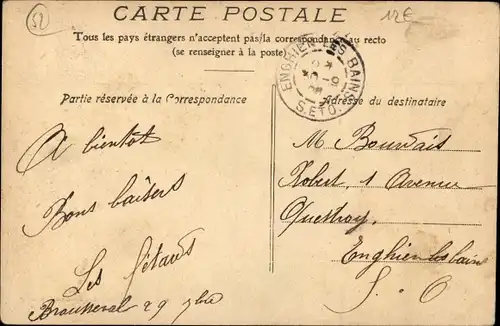 52
12E
CARTE POSTALE
Tous les pays étrangers n'acceptent pas la correspondance au recto
(se renseigner à la poste)
ENGHIEN LES BAINS
S. ET O.
Partie réservée à la Correspondance
Adresse du destinataire
A bientôt
Bons baisers
Les Fétauds
Brousseval 29 9bre
M Bourdais
Robert, 1 Avenue
Questroy
Enghien les bains
S. O